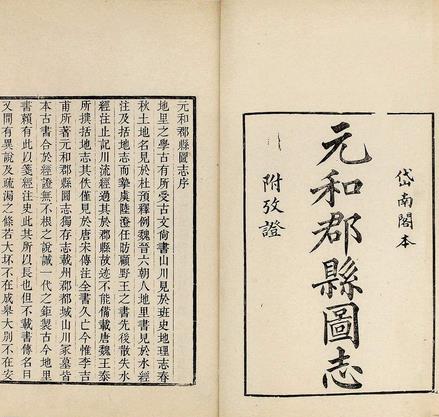 岱南閣本
元和郡縣圖志
附攷證
元和郡縣圖志序
地里之學古有所受古文尚書山川見於班史地理志春
秋土地名見於杜預釋例魏晉六朝人地里書見於水經
注及括地志而摯虞陸澄任昉顧野王之書先後散失水
經注止記川流經過其於郡縣故迹不能備載唐魏王泰
所撰括地志其佚僅見於唐宋傳注全書久亡今惟李吉
甫所著元和郡縣圖志獨存志載州郡都城山川冢墓皆
本古書合於經證無不根之說誠一代之鉅製古今地里
書賴有此以箋經注史此其所以長也但不載書傳名目
又間有異說及疏漏之條若大坯不在成皋大別不在安